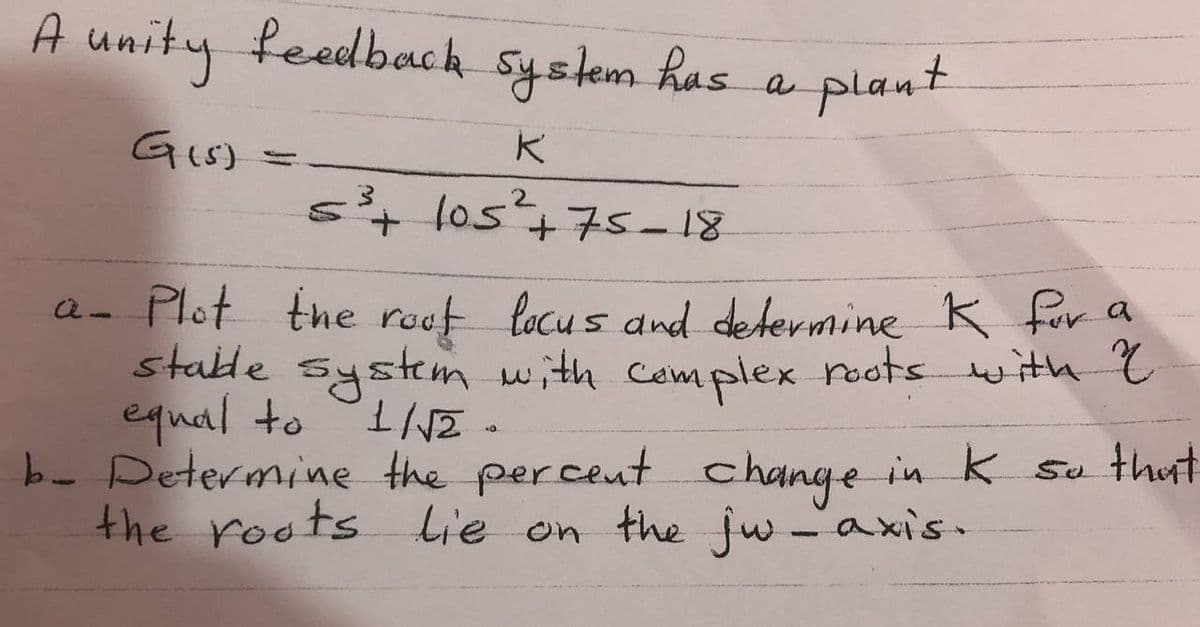 A unity feedback system has a plant
G(s) = K
s³ + 10s² + 7s - 18
a- Plot the root locus and determine K for a
stable system with complex roots with ζ
equal to 1/√2.
b- Determine the percent change in K so that
the roots lie on the jw-axis.